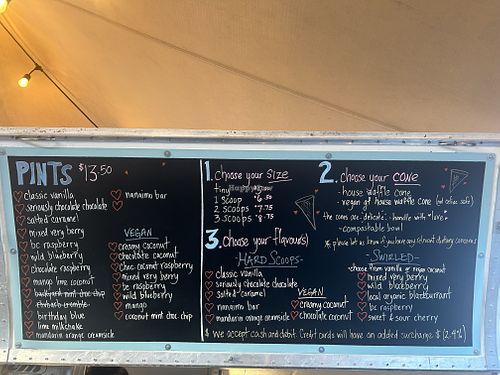 PINTS $13.50
classic vanilla
seriously chocolate chocolate
salted caramel
mixed very berry
bc raspberry
wild blueberry
chocolate raspberry
mango lime coconut
backyard mint choc chip
birthday blue
lime milkshake
mandarin orange creamsicle
nanaimo bar
VEGAN
creamy coconut
chocolate coconut
choc coconut raspberry
mixed very berry
bc raspberry
wild blueberry
mango
coconut mint choc chip
1. choose your SIZE
tiny
1 scoop 6.50
2 scoops 7.75
3 scoops 8.75
2. choose your CONE
-house waffle cone
-vegan gf house waffle cone
the cones are delicate - handle with "love"
-compostable bowl
* please let us know if you have any relevant dietary concerns
3. choose your flavour(s)
-HARD SCOOPS-
classic vanilla
seriously chocolate chocolate
salted caramel
nanaimo bar
mandarin orange creamsicle
VEGAN
creamy coconut
chocolate coconut
-SWIRLED-
choose from vanilla or vegan coconut
mixed very berry
wild blueberry
local organic blackcurrant
bc raspberry
sweet & sour cherry
$ We accept cash and debit. Credit cards will have an added surcharge $ (2.4%)